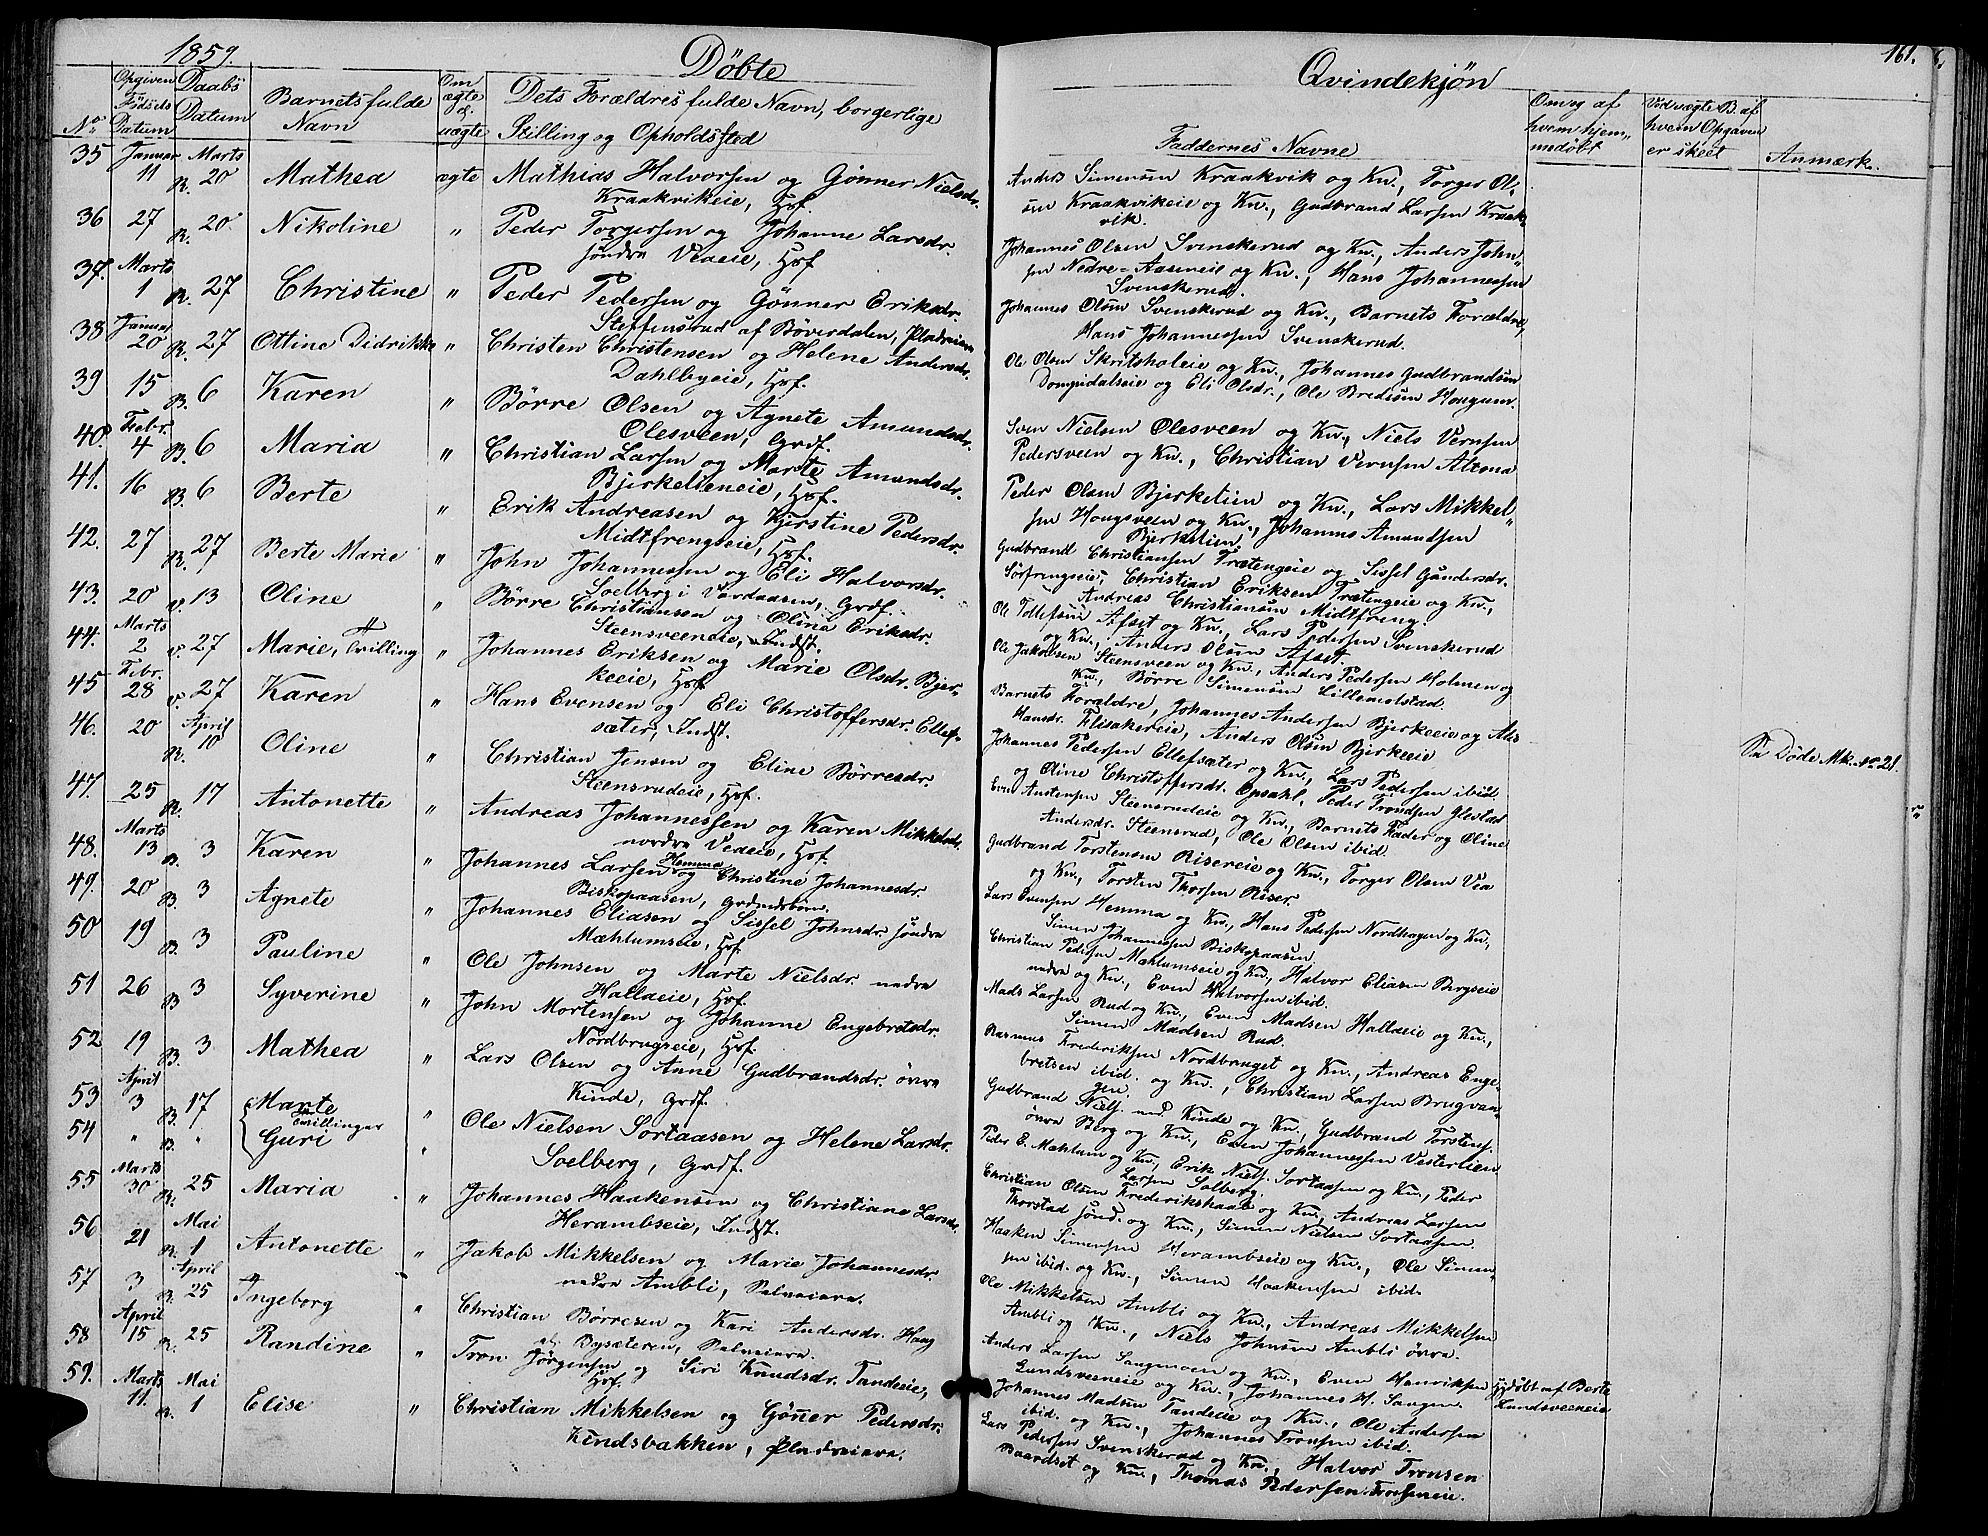 1859.
Döbte
Opgiven Födsels Datum
Daabs Datum
No
Barnets fulde Navn
Om ægte el. uægte
Dets Forældres fulde Navn, borgerlige
Stilling og Opholdssted
35 Januar 11 R. Marts 20 Mathea ægte Mathias Halvorsen og Gönner Nielsdr.
Kraakvikeie, Hsf.
36 27 R. 20 Nikoline " Peder Torgersen og Johanne Larsdr.
söndre Veaeie, Hsf
37. Marts 1 R. 27 Christine " Peder Pedersen og Gönner Eriksdr.
Steffensrud af Böverdalen, Pladseiere
38 Januar 20 R. 27 Ottine Didrikke " Christen Christensen og Helene Andersdr.
Dahlbyeie, Hsf.
39 15 B. 6 Karen " Börre Olsen og Agnete Amundsdr.
Olesveen, Grdf.
40. Febr. 4 B. 6 Maria " Christian Larsen og Marte Amundsdr.
Bjerkelieneie, Hsf.
41. 16 B. 6 Berte " Erik Andreasen og Kjerstine Pedersdr.
Midtfrengseie, Hsf.
42. 27 R. 27 Berte Marie " John Johannessen og Eli Halvorsdr.
Solberg i Vardaasen, Grdf.
43. 20 V. 13 Oline " Börre Christiansen og Oline Eriksdr.
Steensveeneie, Indst.
44. Marts 2 V. 27 Marie, Tvilling " Johannes Eriksen og Marie Olsdr. Bjer-
keeie, Hsf
45 Febr. 28 V. 27 Karen " Hans Evensen og Eli Christoffersdr. Ellef-
sæter, Indst.
46. 20 R. April 10 Oline " Christian Jensen og Eline Börresdr.
Steensrudeie, Hsf.
47. 25 R. 17 Antonette " Andreas Johannessen og Karen Mikkelsdr.
nordre Veaeie, Hsf.
48. Marts 13 B. 3 Karen " Johannes Larsen Hemma og Christine Johannesdr.
Biskopaasen,
49. 20 B. 3 Agnete " Johannes Eliasen og Sissel Johnsdr. söndre
Mæhlumseie, Hsf
50 19 B. 3 Pauline " Ole Johnsen og Marte Nielsdr. nedre
Hallaeie, Hsf.
51 26 B 3 Syverine " John Mortensen og Johanne Engebretsdr.
Nordbrugseie, Hsf.
52 19 B. 3 Mathea " Lars Olsen og Anne Gudbrandsdr. övre
Kinde, Grdf.
53 April 3 B. 17 Marte " Ole Nielsen Sortaasen og Helene Larsdr.
Tvillinger
54 " B " Guri "
Solberg, Grdf.
55 Marts 30 R. 25 Maria " Johannes Haakensen og Christiane Larsdr.
Herambseie, Indst.
56 21 R. Mai 1 Antonette " Jakob Mikkelsen og Marie Johannesdr.
nedre Ambli, Selveiere.
57 3 B. April 25 Ingeborg " Christian Börresen og Kari Andersdr. Haug
Bysæteren, Selveiere.
58 April 15 R. 25 Randine " Tron Jörgensen og Siri Knudsdr. Tandeeie,
Hsf.
59. Marts 11. R. Mai 1 Elise " Christian Mikkelsen og Göner Pedersdr.
Kindsbakken, Pladseiere.
Qvindekjön
161.
Faddernes Navne
Om og af hvem hjem-
medöbt
Ved uægte B. af
hvem Opgaven
er skeet
Anmærk.
Anders Simensen Kraakvik og Kn., Torger Ol-
sen Kraakvikeie og Kn., Gudbrand Larsen Kraak-
vik.
Johannes Olsen Svenskerud og Kn., Anders John-
sen Nedre-Aaseneie og Kn., Hans Johannessen
Svenskerud.
Johannes Olsen Svenskerud og Kn., Barnets Forældre,
Hans Johannessen Svenskerud.
Ole Olsen Skritsholeie og Kn., Johannes Gudbrandsen
Dompidalseie og Eli Olsdr., Ole Bredesen Hougum.
Sven Nielsen Olesveen og Kn., Niels Vernsen
Pedersveen og Kn., Christian Vernsen Altona
Peder Olsen Bjerkelien og Kn., Lars Mikkel-
sen Hougsveen og Kn., Johannes Amundsen
Bjerkelien
Gudbrand Christiansen Trætengeie og Sissel Gundersdr.
Sörfrengseie, Christian Eriksen Trætengeie og Kn.,
Andreas Christiansen Midtfreng.
Ole Tollefsen Afset og Kn., Lars Pedersen Svenskerud
og Kn., Anders Olsen Afset.
Ole Jakobsen Steensveen og Kn., Anders Pedersen Holmen og
Kn., Börre Simensen Lillemolstad.
Barnets Forældre, Johannes Andersen Bjerkeeie og
Hansdr. Flisakereie, Anders Olsen Bjerkeeie
Johannes Pedersen Ellefsæter og Kn., Lars Pedersen ibid
og Oline Christoffersdr. Opsahl, Peder Trondsen Glestad
See Döde Mk. No 21.
Even Austensen Steensrudeie og Kn., Barnets Fader og Oline
Andersdr. Steensrud, Ole Olsen ibid.
Gudbrand Torstensen Risereie og Kn., Torger Olsen Vea
og Kn., Torsten Thorsen Riser.
Lars Evensen Hemma og Kn., Hans Pedersen Nordhagen og Kn.,
Simen Johannessen Biskopaasen
Christian Pedersen Mæhlumseie og Kn., Halvor Eliasen Bergseie
nedre og Kn., Even Halvorsen ibid.
Mads Larsen Rud og Kn., Even Madsen Hallaeie og Kn.,
Simen Madsen Rud.
Rasmus Frederiksen Nordbruget og Kn., Andreas Enge-
bretsen ibid. og Kn., Christian Larsen Brugvan-
gen.
Gudbrand Niels. ned. Kinde og Kn., Gudbrand Torstens.
övre Berg og Kn., Even Johannessen Vesterlien
Peder E. Mæhlum og Kn., Erik Niels. Sortaasen og Kn., Peder
Larsen Solberg.
Christian Olsen Frederikshald og Kn., Andreas Larsen
Thorstad sönd. og Kn., Simen Nielsen Sortaasen.
Haaken Simensen Herambseie og Kn., Ole Simen-
sen ibid. og Kn., Simen Haakensen ibid.
Ole Mikkelsen Ambli og Kn., Andreas Mikkelsen
Ambli og Kn., Niels Johnsen Ambli övre.
Anders Larsen Saugmoen og Kn., Even Henriksen
Lundsveeneie og Kn., Johannes H. Saugen.
hjdöbt af Berte
Lundsveeneie
Johannes Madsen Tandeeie og Kn., Ole Andersen
ibid. og Kn., Johannes Tronsen ibid.
Lars Pedersen Svenskerud og Kn., Halvor Tronsen
Baardset og Kn., Thomas Pedersen